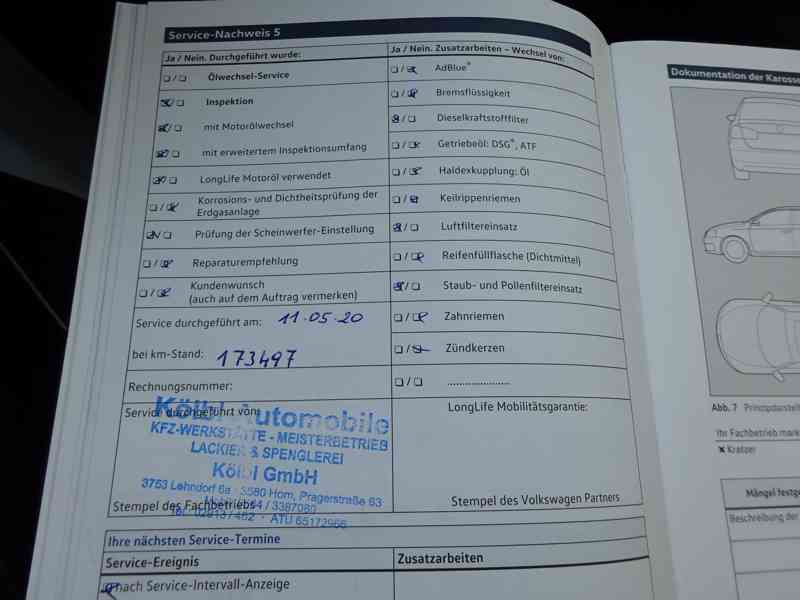 Service-Nachweis 5
Ja / Nein. Durchgeführt wurde:
Ölwechsel-Service
Inspektion
mit Motorölwechsel
mit erweitertem Inspektionsumfang
LongLife Motoröl verwendet
Korrosions- und Dichtheitsprüfung der
Erdgasanlage
Prüfung der Scheinwerfer-Einstellung
Reparaturempfehlung
Kundenwunsch
(auch auf dem Auftrag vermerken)
Service durchgeführt am: 11.05.20
bei km-Stand: 173497
Rechnungsnummer:
Service durchgeführt von:
Kölbl Automobile
KFZ-WERKSTÄTTE - MEISTERBETRIEB
LACKIER & SPENGLEREI
Kölbl GmbH
3753 Lehndorf 6a · 3580 Horn, Pragerstraße 63
/ 3387080
Tel. 02913 / 452 · ATU 65172966
Stempel des Fachbetriebs
Ja / Nein. Zusatzarbeiten – Wechsel von:
AdBlue®
Bremsflüssigkeit
Dieselkraftstofffilter
Getriebeöl: DSG®, ATF
Haldexkupplung: Öl
Keilrippenriemen
Luftfiltereinsatz
Reifenfüllflasche (Dichtmittel)
Staub- und Pollenfiltereinsatz
Zahnriemen
Zündkerzen
LongLife Mobilitätsgarantie:
Stempel des Volkswagen Partners
Ihre nächsten Service-Termine
Service-Ereignis
Zusatzarbeiten
nach Service-Intervall-Anzeige
Dokumentation der
Abb. 7
Ihr Fachbetrieb
Kratzer
Mängel
Beschreibung der